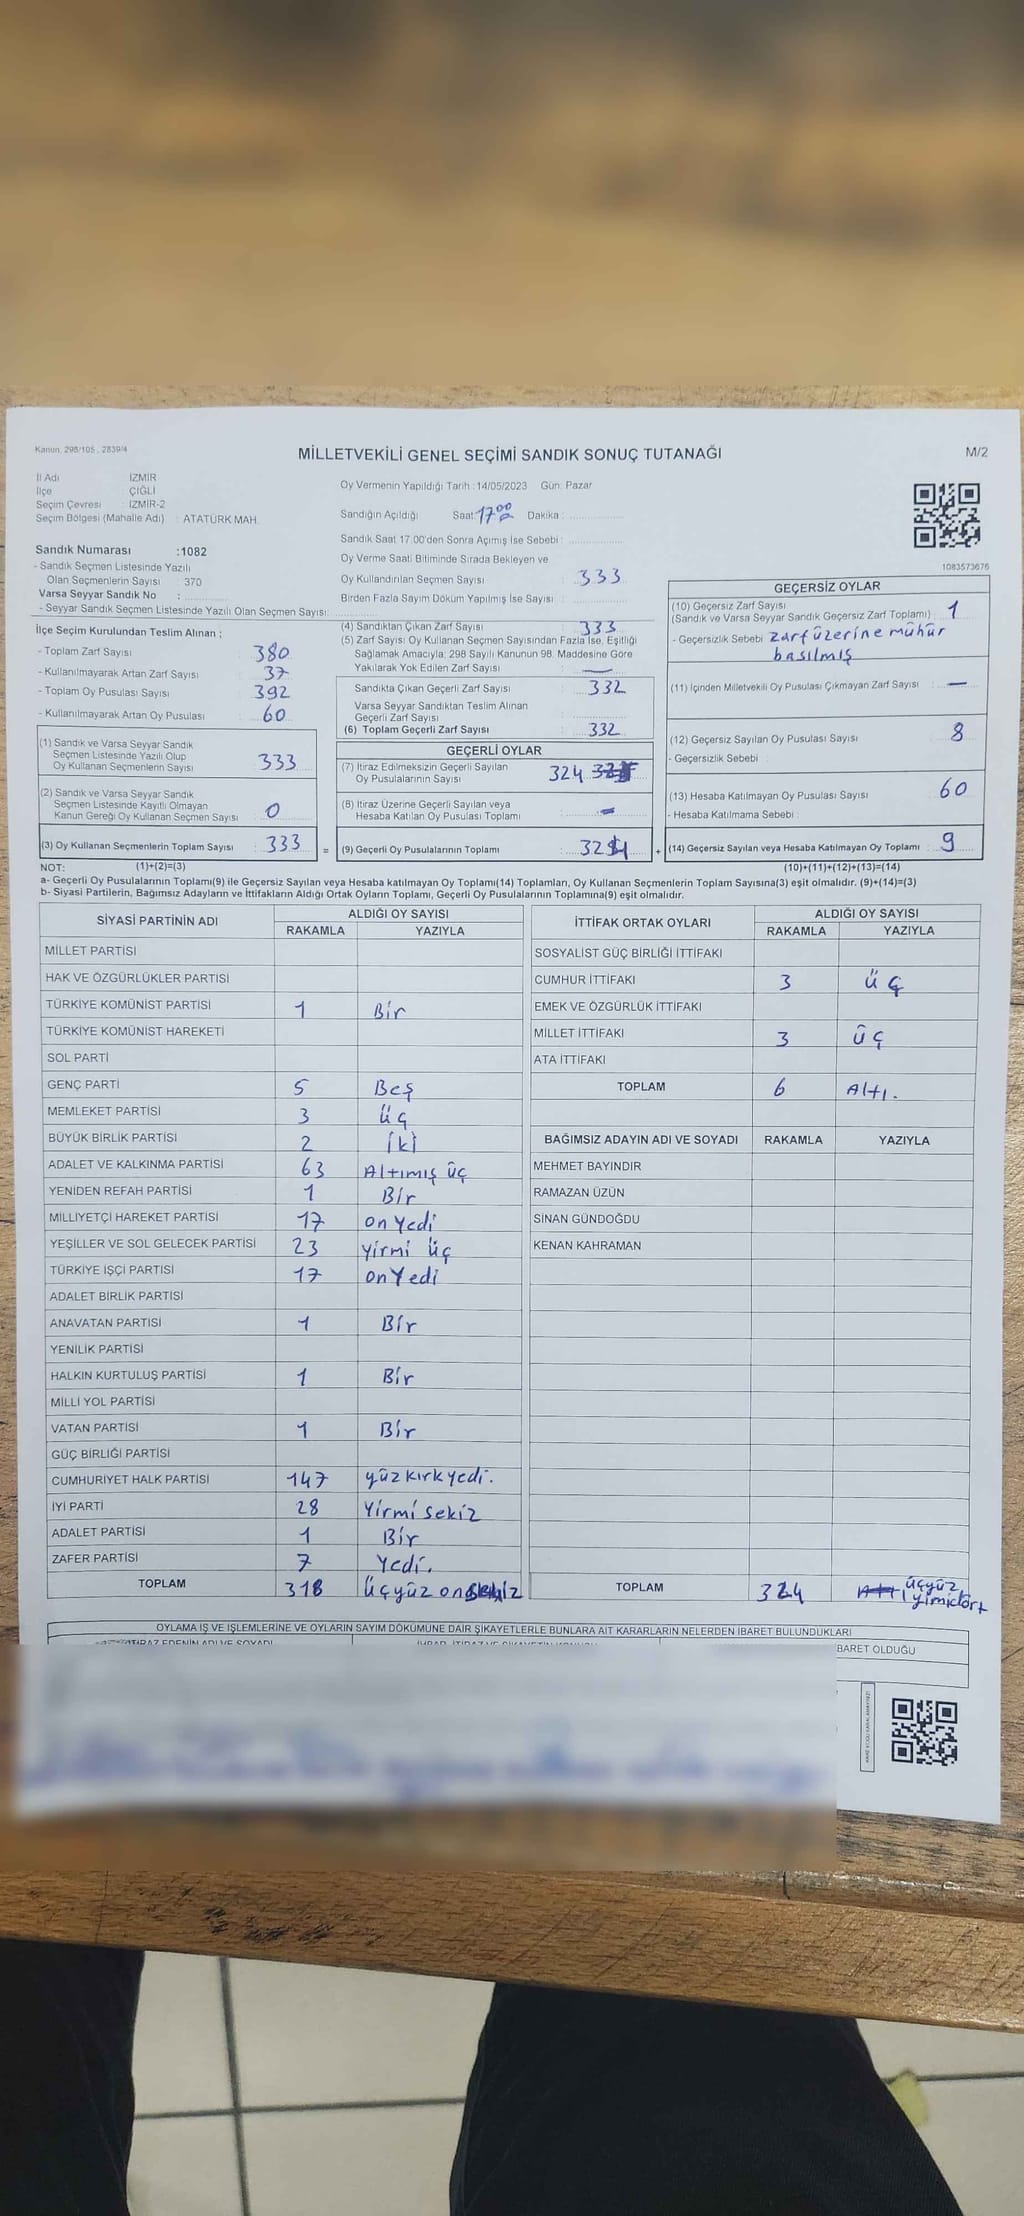 Kanun, 298/105 , 2839/4
MİLLETVEKİLİ GENEL SEÇİMİ SANDIK SONUÇ TUTANAĞI
M/2
İl Adı : İZMİR
İlçe : ÇİĞLİ
Seçim Çevresi : İZMİR-2
Seçim Bölgesi (Mahalle Adı) : ATATÜRK MAH.
Oy Vermenin Yapıldığı Tarih : 14/05/2023 Gün: Pazar
Sandığın Açıldığı Saat: 17:00 Dakika :
Sandık Saat 17.00'den Sonra Açımış İse Sebebi :
Oy Verme Saati Bitiminde Sırada Bekleyen ve
Oy Kullandırılan Seçmen Sayısı : 333
Birden Fazla Sayım Döküm Yapılmış İse Sayısı :
1083573676
Sandık Numarası :1082
- Sandık Seçmen Listesinde Yazılı
Olan Seçmenlerin Sayısı : 370
Varsa Seyyar Sandık No :
- Seyyar Sandık Seçmen Listesinde Yazılı Olan Seçmen Sayısı:
İlçe Seçim Kurulundan Teslim Alınan ;
- Toplam Zarf Sayısı : 380
- Kullanılmayarak Artan Zarf Sayısı : 37
- Toplam Oy Pusulası Sayısı : 392
- Kullanılmayarak Artan Oy Pusulası : 60
(1) Sandık ve Varsa Seyyar Sandık
Seçmen Listesinde Yazılı Olup
Oy Kullanan Seçmenlerin Sayısı : 333
(2) Sandık ve Varsa Seyyar Sandık
Seçmen Listesinde Kayıtlı Olmayan
Kanun Gereği Oy Kullanan Seçmen Sayısı : 0
(3) Oy Kullanan Seçmenlerin Toplam Sayısı : 333
(4) Sandıktan Çıkan Zarf Sayısı : 333
(5) Zarf Sayısı Oy Kullanan Seçmen Sayısından Fazla İse, Eşitliği
Sağlamak Amacıyla; 298 Sayılı Kanunun 98. Maddesine Göre
Yakılarak Yok Edilen Zarf Sayısı : —
Sandıkta Çıkan Geçerli Zarf Sayısı : 332
Varsa Seyyar Sandıktan Teslim Alınan
Geçerli Zarf Sayısı :
(6) Toplam Geçerli Zarf Sayısı : 332
GEÇERLİ OYLAR
(7) İtiraz Edilmeksizin Geçerli Sayılan
Oy Pusulalarının Sayısı : 324
(8) İtiraz Üzerine Geçerli Sayılan veya
Hesaba Katılan Oy Pusulası Toplamı : —
= (9) Geçerli Oy Pusulalarının Toplamı : 324 +
GEÇERSİZ OYLAR
(10) Geçersiz Zarf Sayısı
(Sandık ve Varsa Seyyar Sandık Geçersiz Zarf Toplamı) : 1
- Geçersizlik Sebebi : zarf üzerine mühür
basılmış
(11) İçinden Milletvekili Oy Pusulası Çıkmayan Zarf Sayısı : —
(12) Geçersiz Sayılan Oy Pusulası Sayısı : 8
- Geçersizlik Sebebi :
(13) Hesaba Katılmayan Oy Pusulası Sayısı : 60
- Hesaba Katılmama Sebebi :
(14) Geçersiz Sayılan veya Hesaba Katılmayan Oy Toplamı : 9
NOT: (1)+(2)=(3) (10)+(11)+(12)+(13)=(14)
a- Geçerli Oy Pusulalarının Toplamı(9) ile Geçersiz Sayılan veya Hesaba katılmayan Oy Toplamı(14) Toplamları, Oy Kullanan Seçmenlerin Toplam Sayısına(3) eşit olmalıdır. (9)+(14)=(3)
b- Siyasi Partilerin, Bağımsız Adayların ve İttifakların Aldığı Ortak Oyların Toplamı, Geçerli Oy Pusulalarının Toplamına(9) eşit olmalıdır.
SİYASİ PARTİNİN ADI ALDIĞI OY SAYISI
RAKAMLA YAZIYLA
MİLLET PARTİSİ
HAK VE ÖZGÜRLÜKLER PARTİSİ
TÜRKİYE KOMÜNİST PARTİSİ 1 Bir
TÜRKİYE KOMÜNİST HAREKETİ
SOL PARTİ
GENÇ PARTİ 5 Beş
MEMLEKET PARTİSİ 3 üç
BÜYÜK BİRLİK PARTİSİ 2 iki
ADALET VE KALKINMA PARTİSİ 63 Altımış üç
YENİDEN REFAH PARTİSİ 1 Bir
MİLLİYETÇİ HAREKET PARTİSİ 17 on yedi
YEŞİLLER VE SOL GELECEK PARTİSİ 23 yirmi üç
TÜRKİYE İŞÇİ PARTİSİ 17 on Yedi
ADALET BİRLİK PARTİSİ
ANAVATAN PARTİSİ 1 Bir
YENİLİK PARTİSİ
HALKIN KURTULUŞ PARTİSİ 1 Bir
MİLLİ YOL PARTİSİ
VATAN PARTİSİ 1 Bir
GÜÇ BİRLİĞİ PARTİSİ
CUMHURİYET HALK PARTİSİ 147 yüz kırk yedi.
İYİ PARTİ 28 Yirmi sekiz
ADALET PARTİSİ 1 Bir
ZAFER PARTİSİ 7 Yedi.
TOPLAM 318 üçyüz onsekiz
İTTİFAK ORTAK OYLARI ALDIĞI OY SAYISI
RAKAMLA YAZIYLA
SOSYALİST GÜÇ BİRLİĞİ İTTİFAKI
CUMHUR İTTİFAKI 3 üç
EMEK VE ÖZGÜRLÜK İTTİFAKI
MİLLET İTTİFAKI 3 üç
ATA İTTİFAKI
TOPLAM 6 Altı.
BAĞIMSIZ ADAYIN ADI VE SOYADI RAKAMLA YAZIYLA
MEHMET BAYINDIR
RAMAZAN ÜZÜN
SİNAN GÜNDOĞDU
KENAN KAHRAMAN
TOPLAM 324 üçyüz
yirmidört
OYLAMA İŞ VE İŞLEMLERİNE VE OYLARIN SAYIM DÖKÜMÜNE DAİR ŞİKAYETLERLE BUNLARA AİT KARARLARIN NELERDEN İBARET BULUNDUKLARI
BARET OLDUĞU